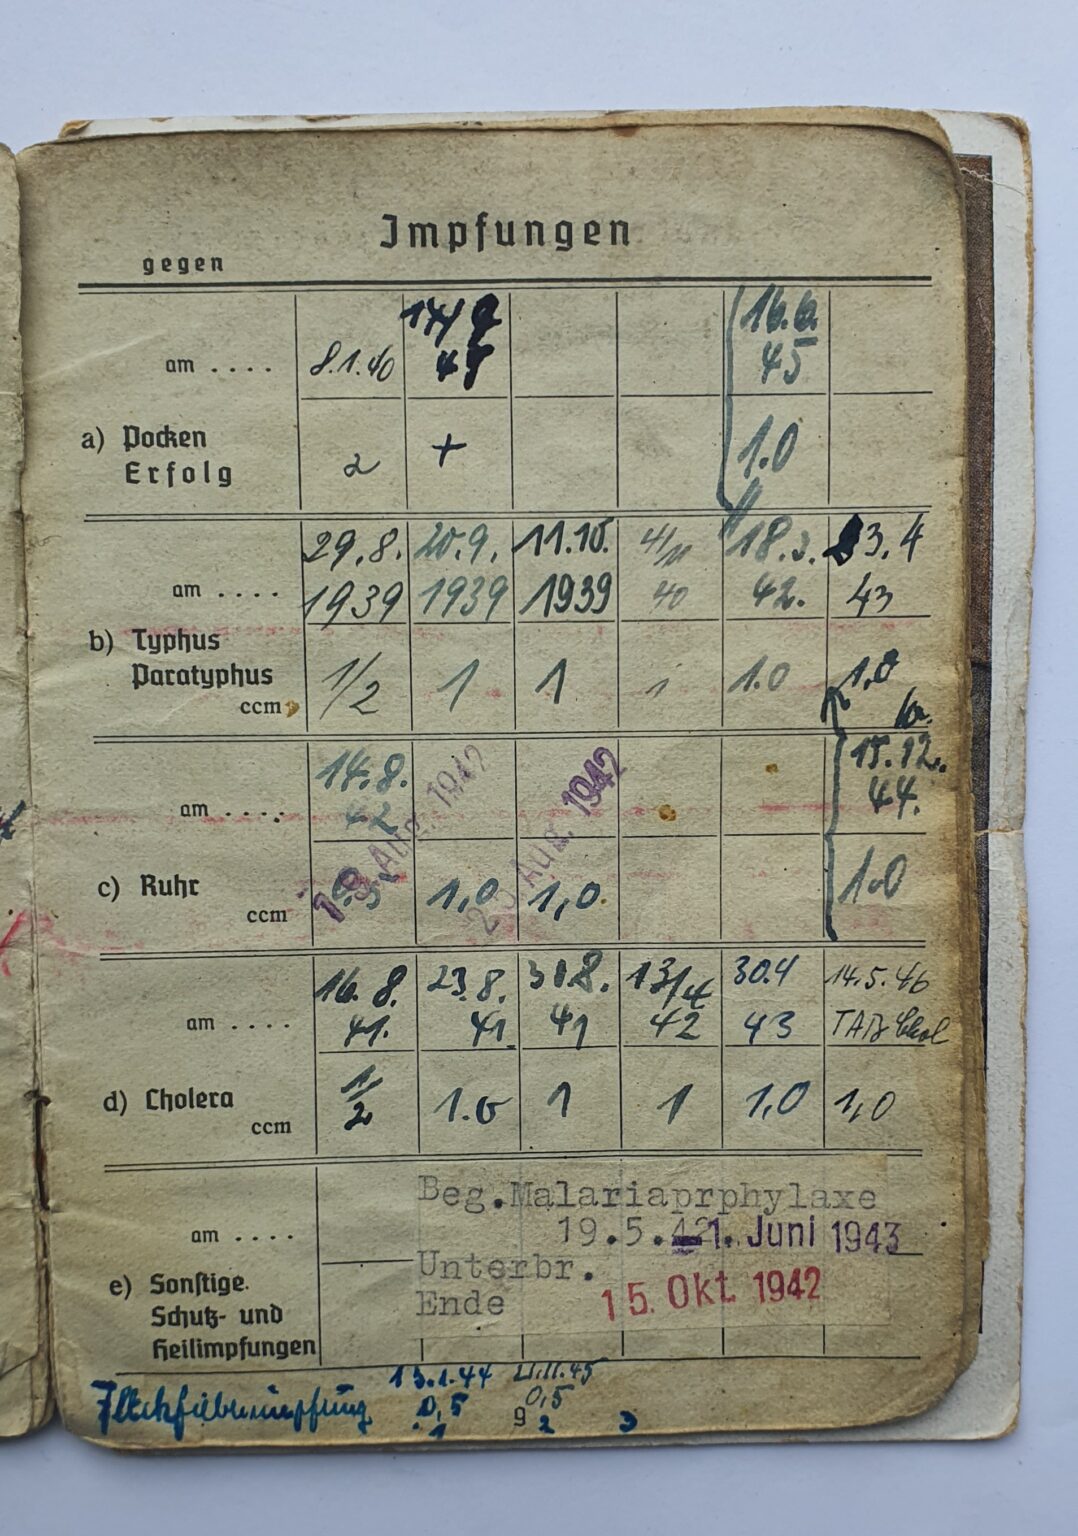 Impfungen
gegen
16.6.
am . . . . 8.1.40 45
a) Pocken
Erfolg 2 + 1.0
29.8. 20.9. 11.10. 4/11 18.3. 3.4
am . . . . 1939 1939 1939 40 42. 43
b) Typhus
Paratyphus 1/2 1 1 1 1.0 1,0
ccm
14.8. 1942 1942 15.12.
am . . . . 42 Aug. Aug. 44.
c) Ruhr 1,0 1,0. 1.0
ccm
16.8. 23.8. 31.8. 13/4 30.4 14.5.46
am . . . . 41. 41. 41 42 43 TAB Chol
d) Cholera 1/2 1.0 1 1 1,0 1,0
ccm
Beg.Malariaprphylaxe
am . . . . 19.5.42 1. Juni 1943
Unterbr.
e) Sonstige. Ende 15. Okt 1942
Schutz- und
Heilimpfungen
13.1.44 21.11.45
Fleckfieberimpfung 0,5 0,5
1 9 2 3